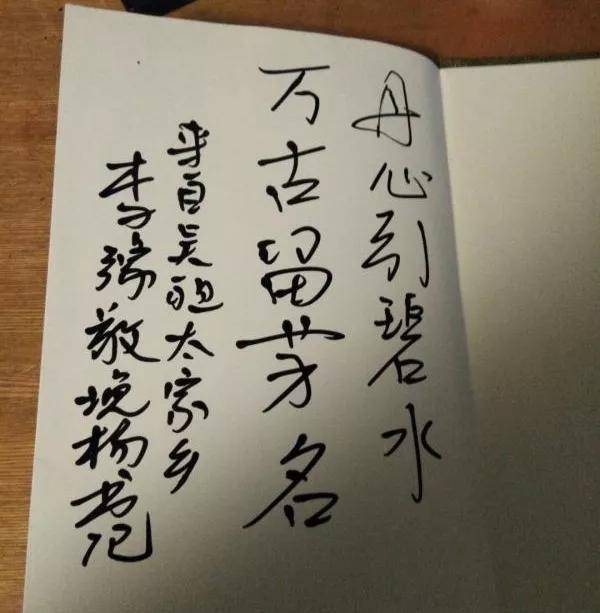 丹心引碧水
万古留芳名
来自吴祖太家乡
李强敬挽杨书记